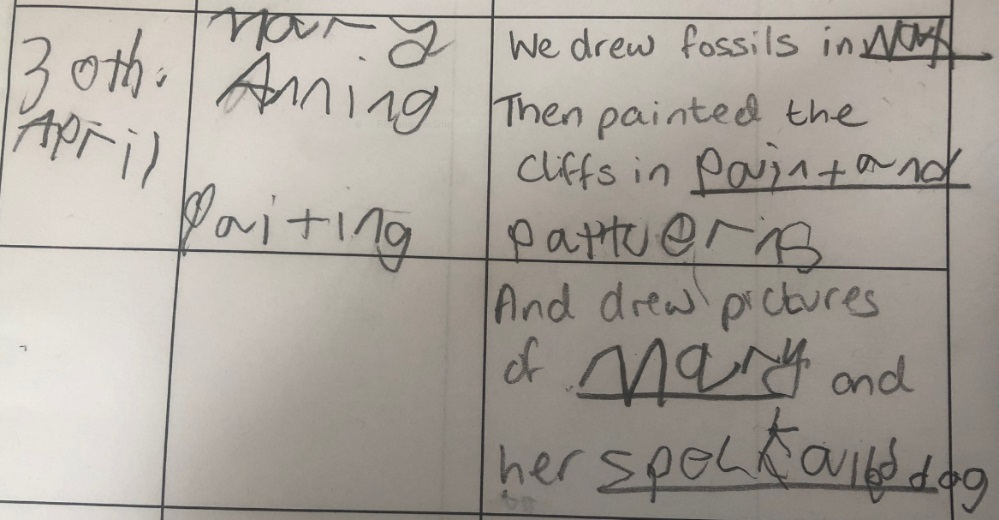 30th.
April
Mary
Anning
Paiting
We drew fossils in
Then painted the
cliffs in Paint and
patterns
And drew pictures
of Mary and
her dog